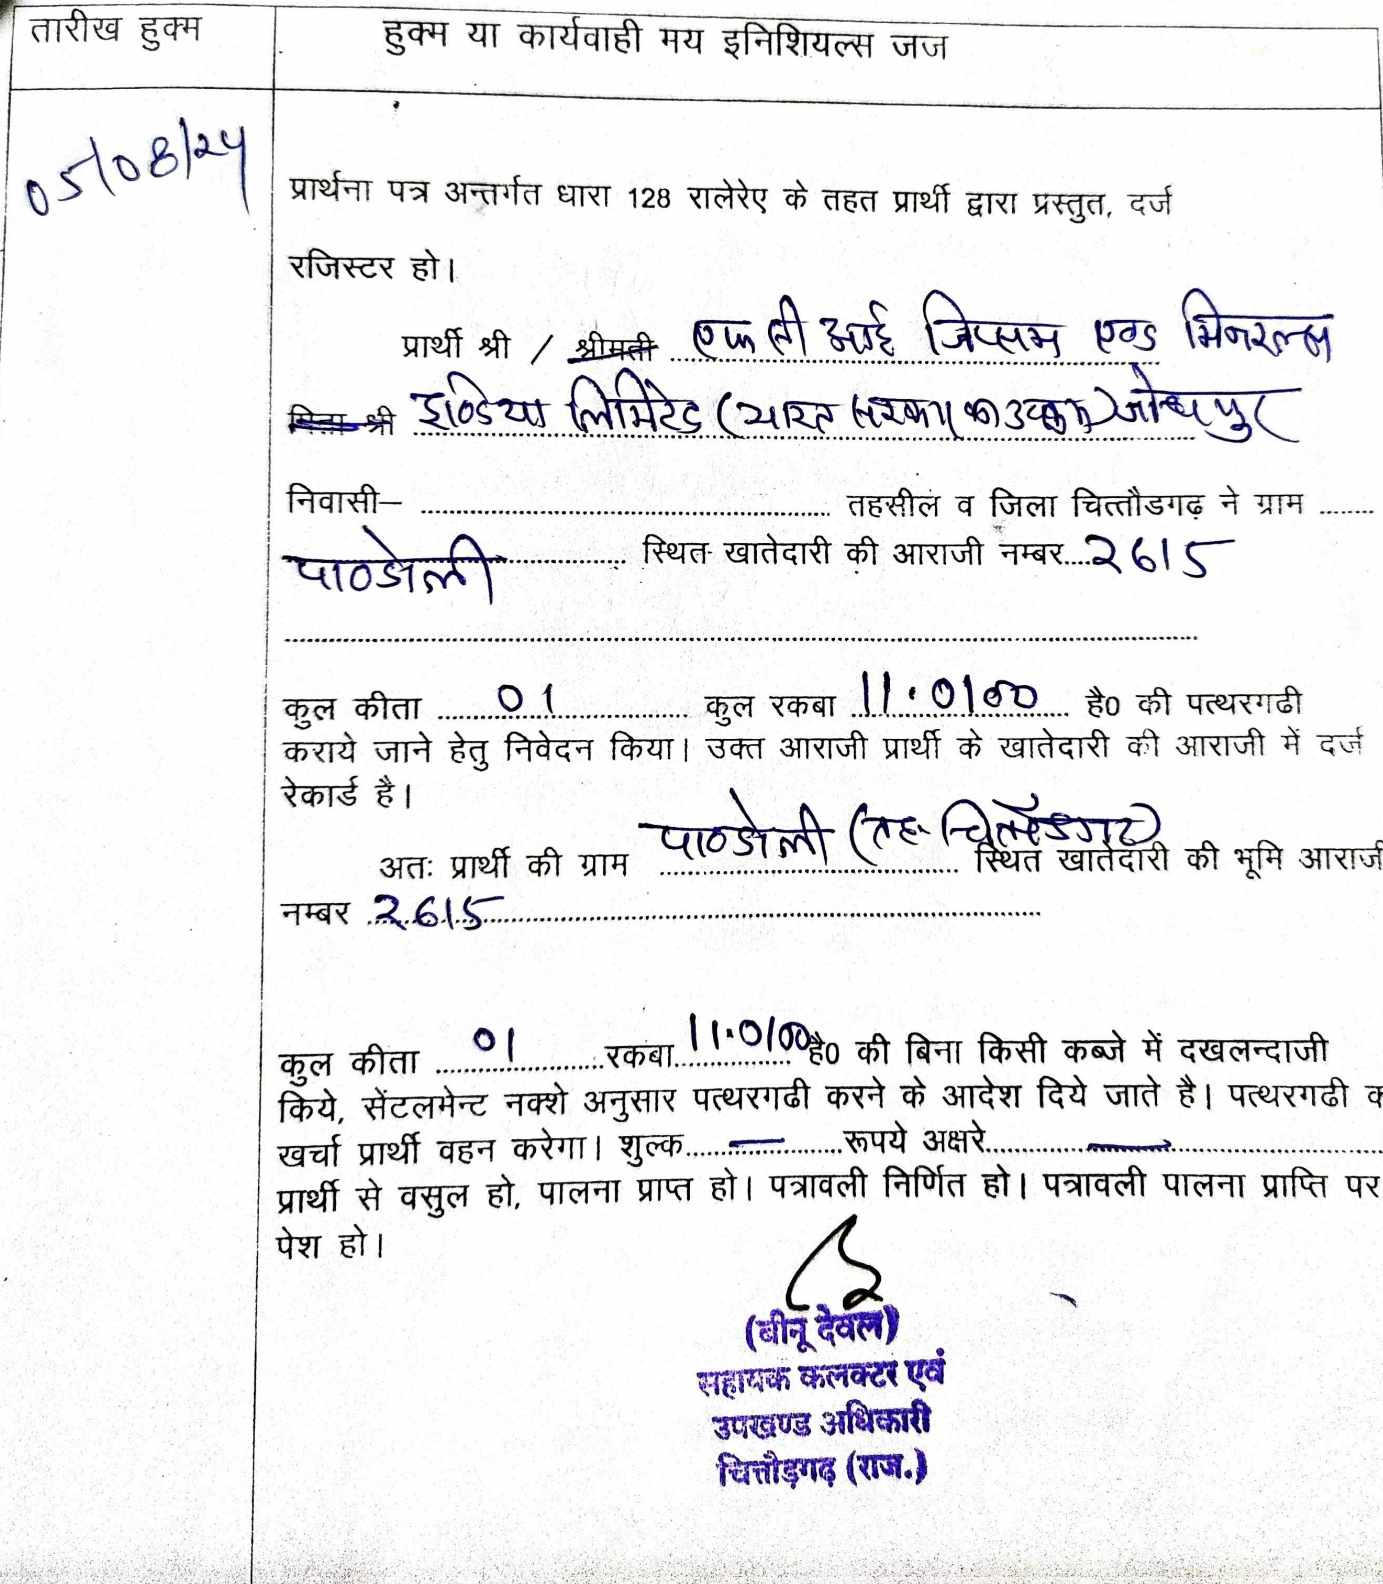 तारीख हुक्म
हुक्म या कार्यवाही मय इनिशियल्स जज
05/08/24
प्रार्थना पत्र अन्तर्गत धारा 128 रालेरेए के तहत प्रार्थी द्वारा प्रस्तुत, दर्ज
रजिस्टर हो।
प्रार्थी श्री / श्रीमती एफ सी आई जिप्सम एण्ड मिनरल्स
पिता श्री इण्डिया लिमिटेड (भारत सरकार का उपक्रम) जोधपुर
निवासी– ........ तहसील व जिला चित्तौडगढ़ ने ग्राम ........
पाण्डोली ........ स्थित खातेदारी की आराजी नम्बर....2615
कुल कीता ....01.... कुल रकबा 11.0100 है0 की पत्थरगढी
कराये जाने हेतु निवेदन किया। उक्त आराजी प्रार्थी के खातेदारी की आराजी में दर्ज
रेकार्ड है।
अतः प्रार्थी की ग्राम पाण्डोली (तह- चित्तौडगढ) स्थित खातेदारी की भूमि आराजी
नम्बर 2615
कुल कीता ....01.... रकबा 11.0100 है0 की बिना किसी कब्जे में दखलन्दाजी
किये, सेंटलमेन्ट नक्शे अनुसार पत्थरगढी करने के आदेश दिये जाते है। पत्थरगढी क
खर्चा प्रार्थी वहन करेगा। शुल्क....—....रूपये अक्षरे....—....
प्रार्थी से वसुल हो, पालना प्राप्त हो। पत्रावली निर्णित हो। पत्रावली पालना प्राप्ति पर
पेश हो।
(बीनू देवल)
सहायक कलक्टर एवं
उपखण्ड अधिकारी
चित्तौड़गढ़ (राज.)